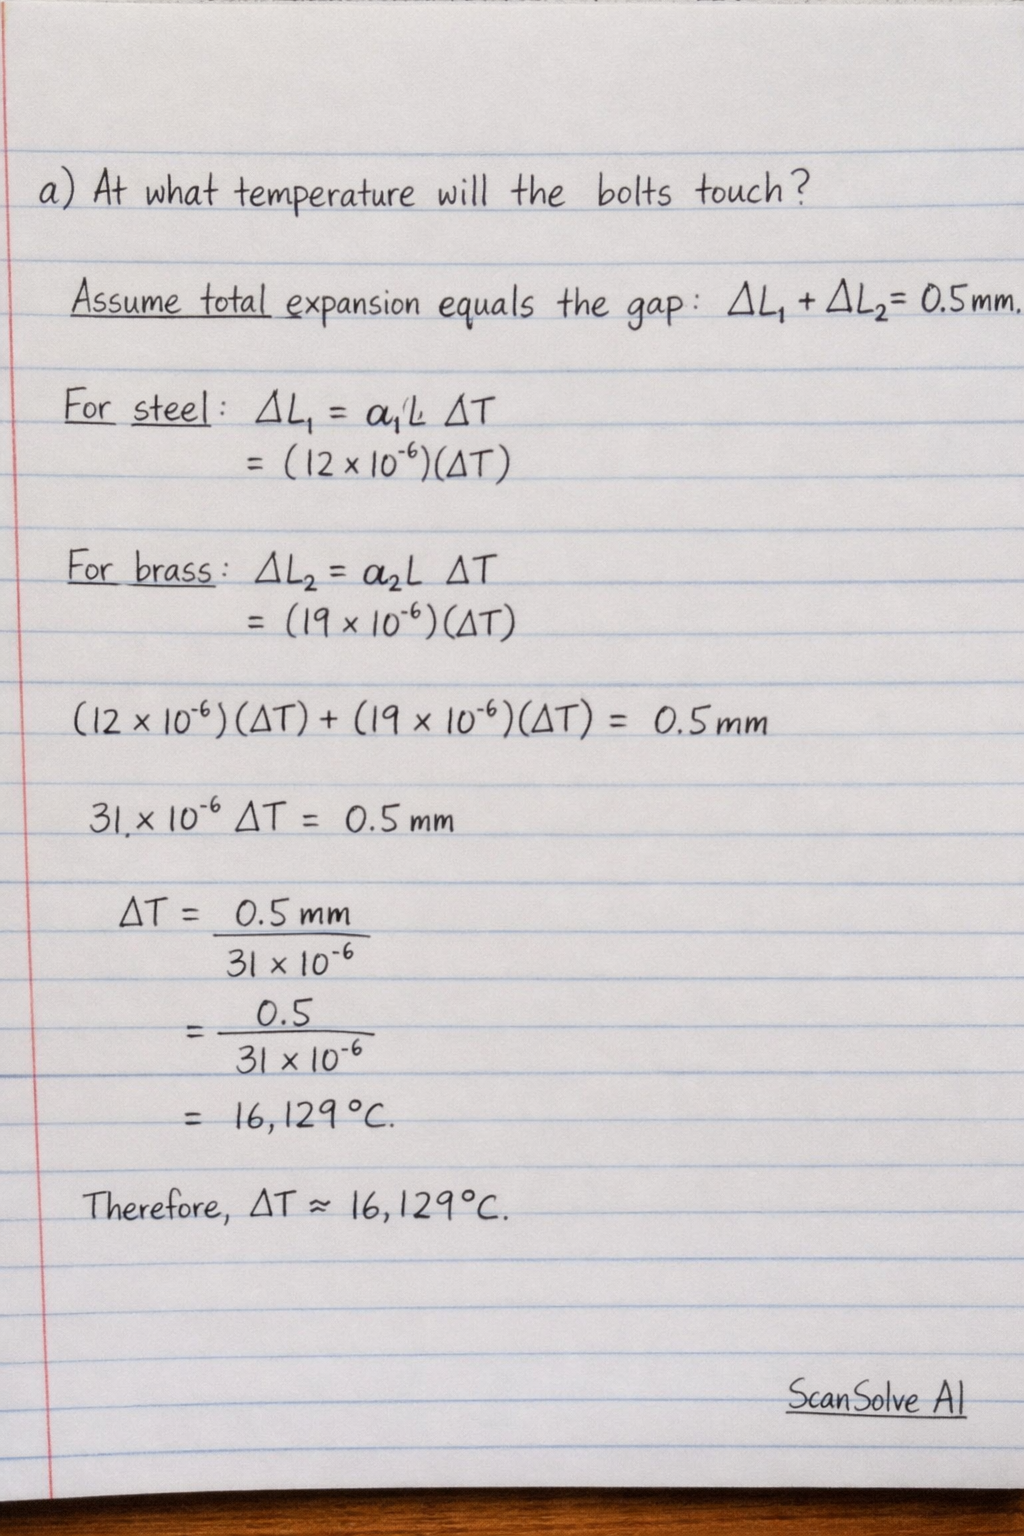 a) At what temperature will the bolts touch?
Assume total expansion equals the gap: ΔL₁ + ΔL₂ = 0.5 mm.
For steel: ΔL₁ = α₁L ΔT
= (12 × 10⁻⁶)(ΔT)
For brass: ΔL₂ = α₂L ΔT
= (19 × 10⁻⁶)(ΔT)
(12 × 10⁻⁶)(ΔT) + (19 × 10⁻⁶)(ΔT) = 0.5 mm
31 × 10⁻⁶ ΔT = 0.5 mm
ΔT = 0.5 mm
31 × 10⁻⁶
= 0.5
31 × 10⁻⁶
= 16,129 °C.
Therefore, ΔT ≈ 16,129 °C.
ScanSolve AI